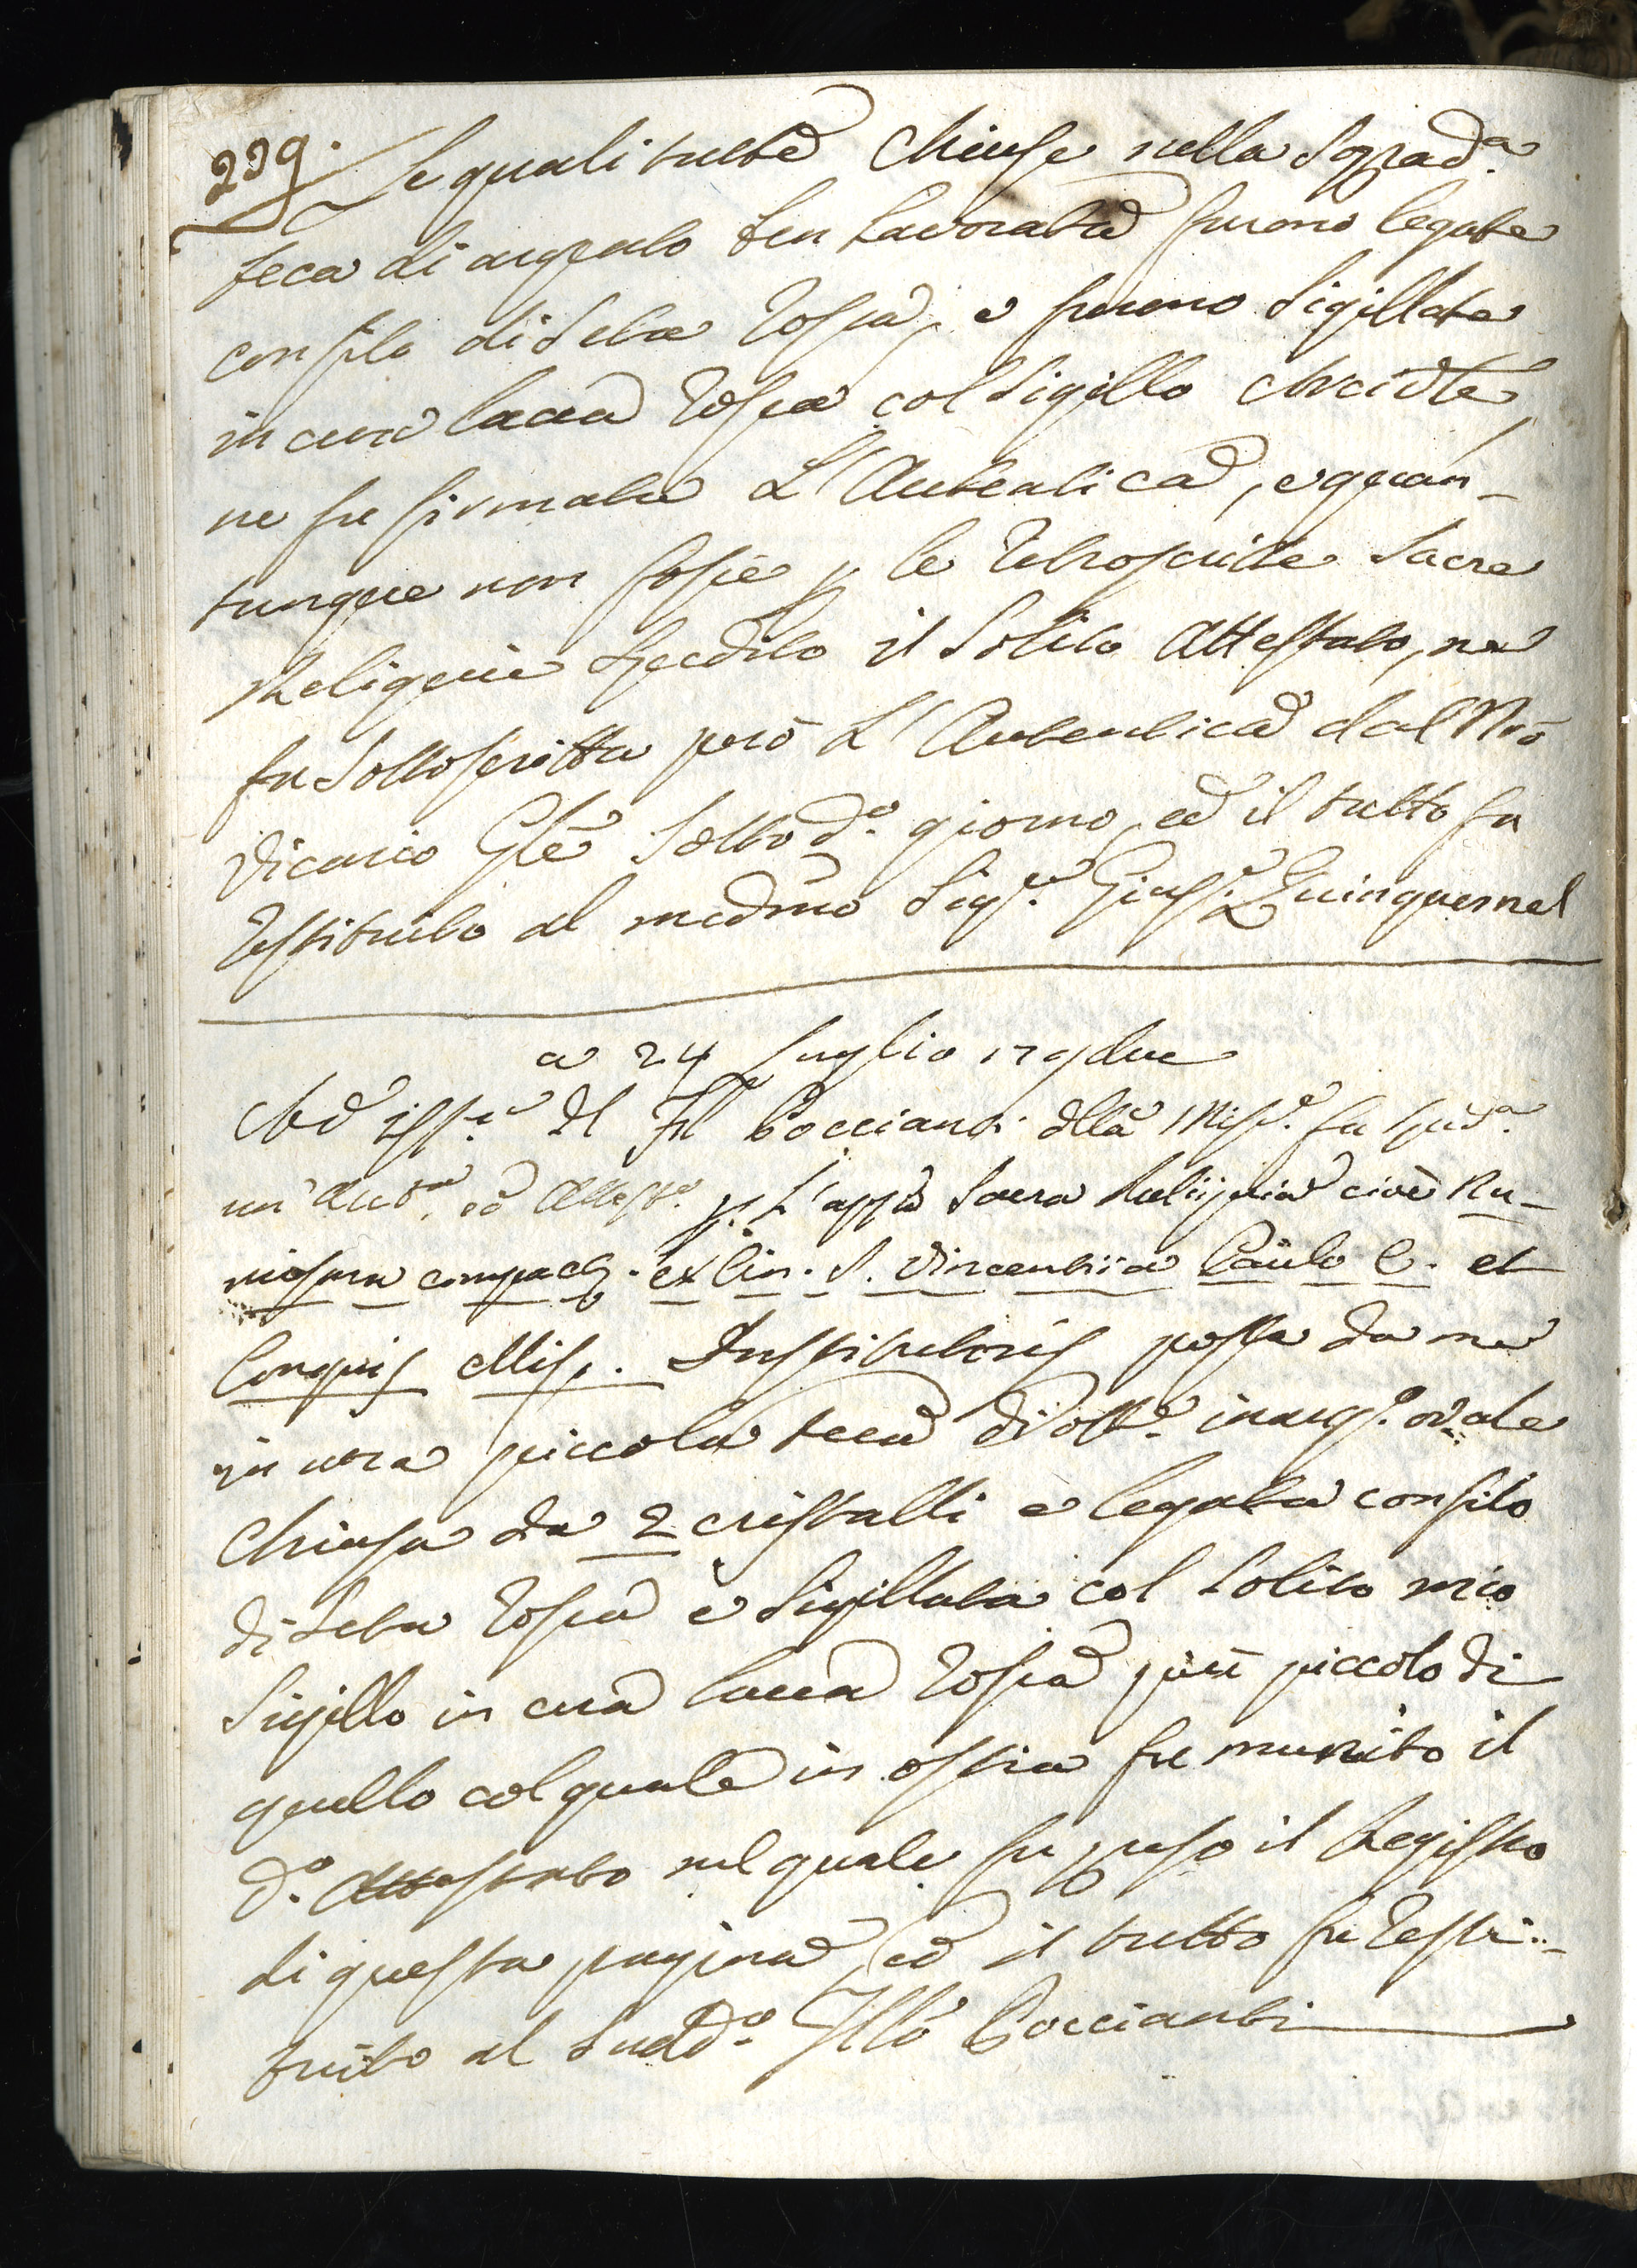 239.
Le quali tutte chiuse nella soprad.a
teca di argento ben lavorata furono legate
con filo di seta rossa, e furono sigillate
in cera lacca rossa col sigillo
ne fu firmata L'Autentica, e quan-
tunque non fosse p le retroscritte Sacre
Reliquie spedito il solito Attestato, ne
fu sottoscritta però L'Autentica dal Nrõ
Vicario Gle sotto d.o giorno, ed il tutto fu
restituito al medmo Sig.r Gius.e Quinquernel
a 24 Luglio 179due
Ad del Coccianti della Miss.e fu sped.a
un' Aut.a ed Attest.o p. L'appta Sacra Reliquia cioè Nu-
 compact. ex lin. S. Vincentii a Paulo C. et
Congnis Miss. Institutoris posta da me
in una piccola teca di ott.e inarg.o ovale
chiusa da 2 cristalli e legata con filo
di seta rossa e sigillata col solito mio
sigillo in cera lacca rossa più piccolo di
quello col quale in ostia fu munito il
d.o Attestato nel quale fu preso il Registro
di questa pagina, ed il tutto fu resti-
tuito al sudd.o Illo Coccianti